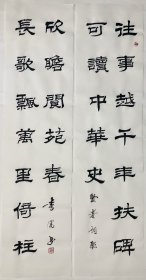 往事越千年扶碑
可讀中華史
長歌飄萬里倚柱
欣瞻閬苑春